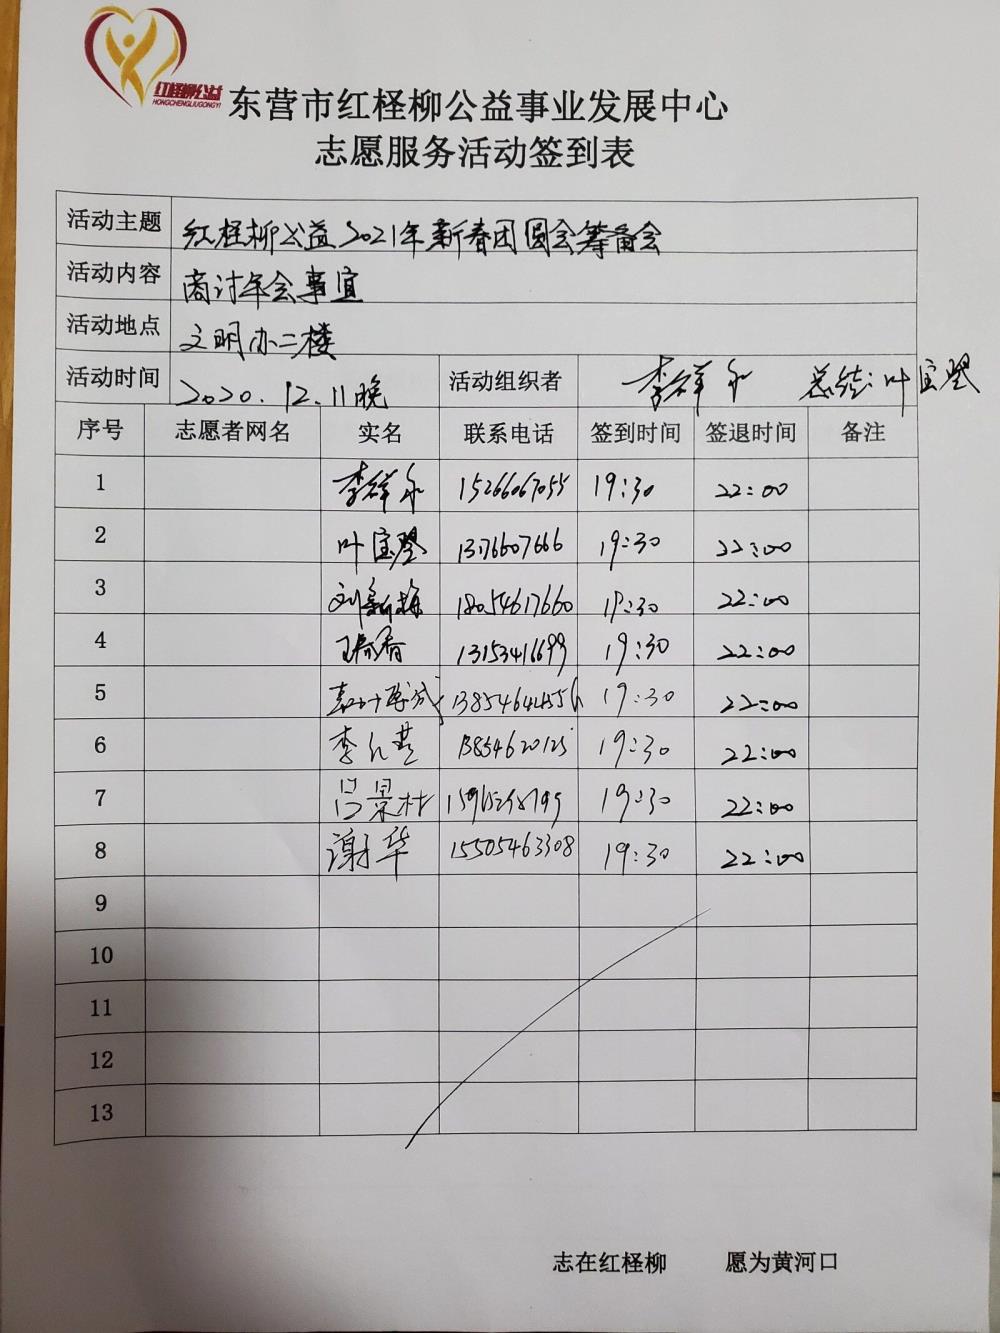 红柽柳公益
HONGCHENGLIUGONGYI
东营市红柽柳公益事业发展中心
志愿服务活动签到表
活动主题 红柽柳公益2021年新春团圆会筹备会
活动内容 商讨年会事宜
活动地点 文明办二楼
活动时间 2020.12.11晚 活动组织者 李祥永 总结:叶宝
序号 志愿者网名 实名 联系电话 签到时间 签退时间 备注
1 李祥永 15266067055 19:30 22:00
2 叶宝 13176607666 19:30 22:00
3 刘新梅 18054617660 19:30 22:00
4 13153416699 19:30 22:00
5 19:30 22:00
6 李 13854620125 19:30 22:00
7 吕景材 19:30 22:00
8 谢华 15505463308 19:30 22:00
9
10
11
12
13
志在红柽柳 愿为黄河口